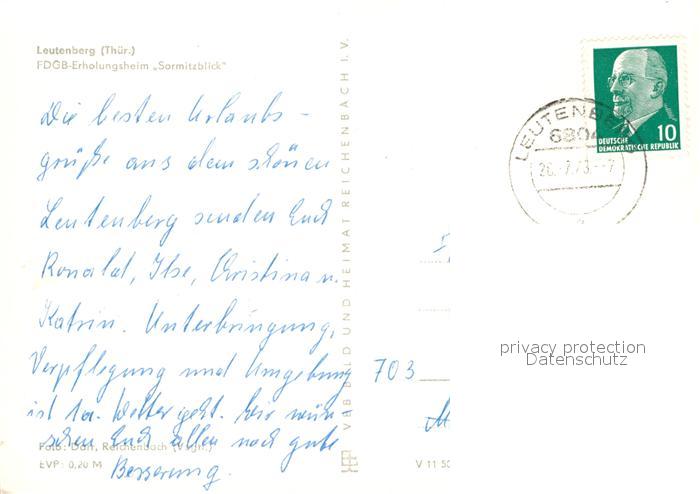 Leutenberg (Thür.)
FDGB-Erholungsheim „Sormitzblick"
Die besten Urlaubs-
grüße aus dem schönen
Leutenberg senden Euch
Ronald, Ilse, Christina u.
Katrin. Unterbringung,
Verpflegung und Umgebung
ist 1a. Wetter geht. Wir wün-
schen Euch allen noch gute
Besserung.
Foto: Darr, Reichenbach (Vogtl.)
EVP: 0,20 M
VEB BILD UND HEIMAT REICHENBACH I. V.
V 11 50
703
LEUTENBERG
6804
26.-7.73.--7
DEUTSCHE
DEMOKRATISCHE REPUBLIK
10
privacy protection
Datenschutz